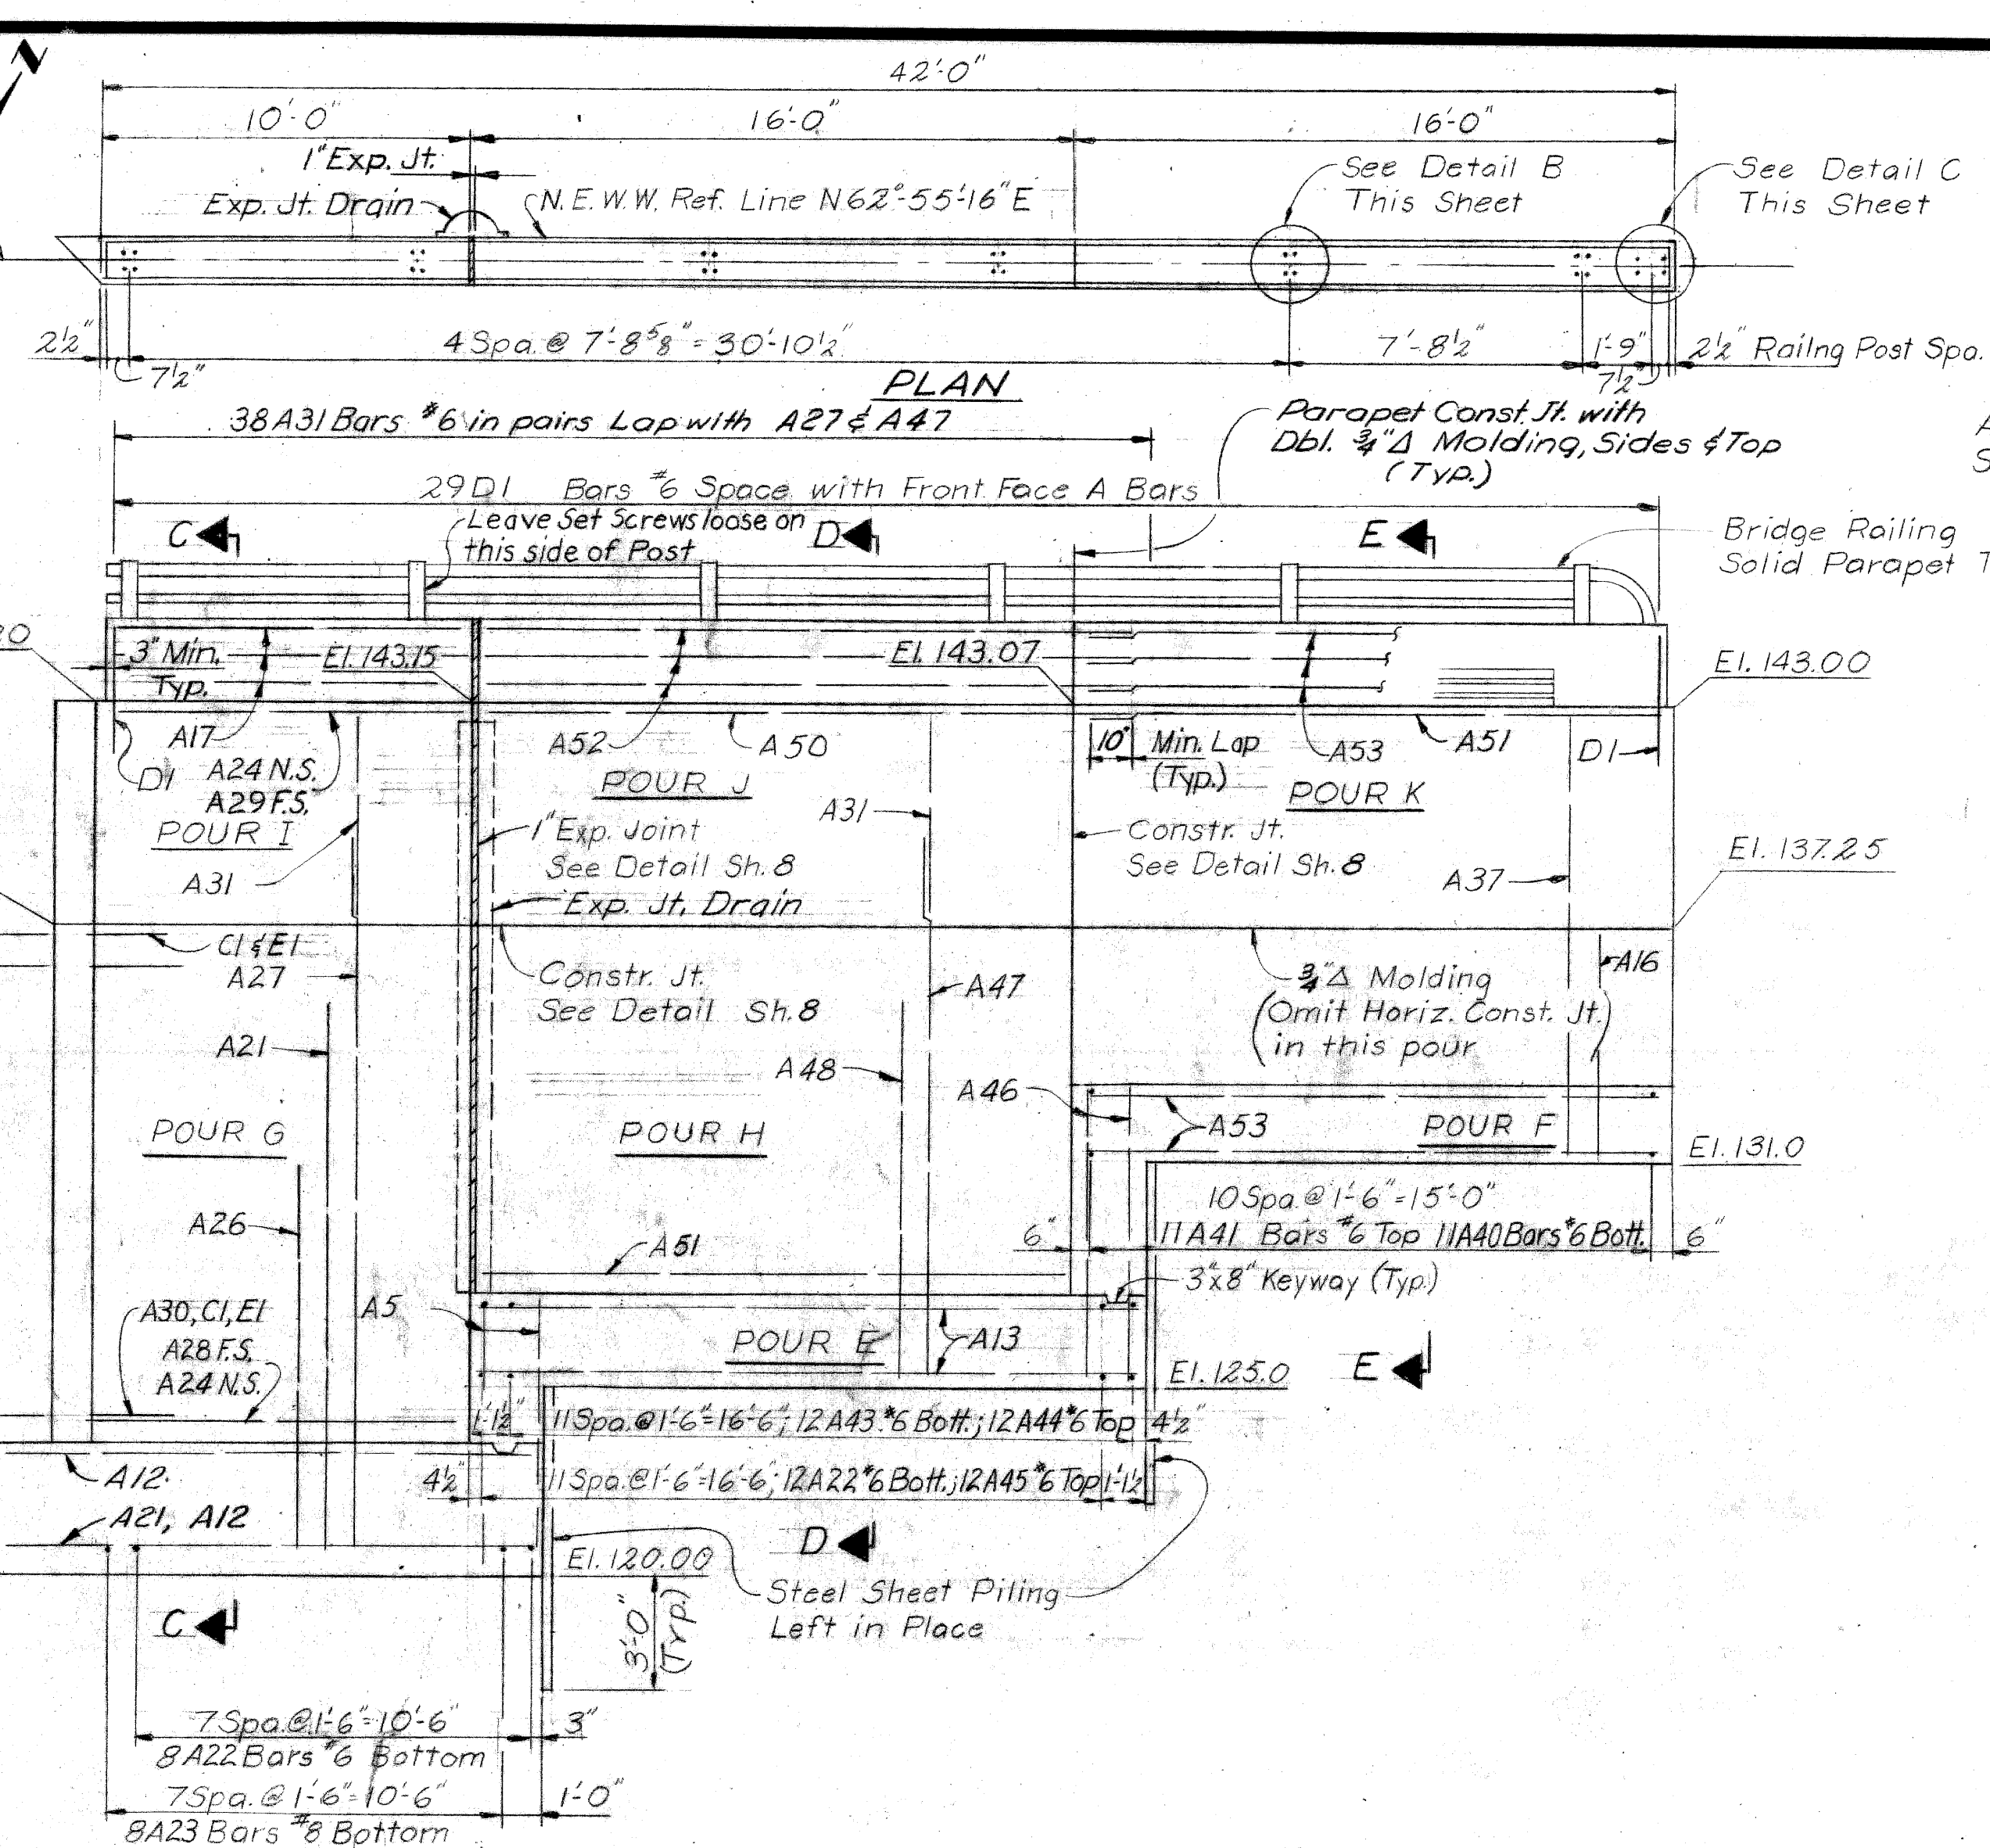 N
42'-0"
10'-0"
16'-0"
16'-0"
1" Exp. Jt.
Exp. Jt. Drain
N.E.W.W. Ref. Line N62°-55'-16" E
See Detail B
This Sheet
See Detail C
This Sheet
2½"
7½"
4 Spa. @ 7'-8⅝" = 30'-10½"
7'-8½"
1'-9"
7½"
2½" Railng Post Spa.
PLAN
38 A31 Bars #6 in pairs Lap with A27 & A47
Parapet Const. Jt. with
Dbl. ¾" Δ Molding, Sides & Top
(Typ.)
29 D1 Bars #6 Space with Front Face A Bars
C
Leave Set Screws loose on
this side of Post
D
E
Bridge Railing
Solid Parapet T
3" Min.
Typ.
El. 143.15
El. 143.07
El. 143.00
A17
D1
A24 N.S.
A29 F.S.
POUR I
A31
A52
A50
POUR J
A31
1" Exp. Joint
See Detail Sh. 8
Exp. Jt. Drain
10" Min. Lap
(Typ.)
A53
A51
D1
POUR K
Constr. Jt.
See Detail Sh. 8
A37
El. 137.25
C1 & E1
A27
A21
Constr. Jt.
See Detail Sh. 8
A47
A48
¾" Δ Molding
(Omit Horiz. Const. Jt.)
in this pour
A16
A46
POUR G
POUR H
A53
POUR F
El. 131.0
A26
A51
10 Spa. @ 1'-6" = 15'-0"
6"
11 A41 Bars #6 Top 11 A40 Bars #6 Bott.
6"
3" x 8" Keyway (Typ.)
A30, C1, E1
A28 F.S.
A24 N.S.
A5
POUR E
A13
El. 125.0
E
1'-1½"
11 Spa. @ 1'-6" = 16'-6"; 12 A43 #6 Bott.; 12 A44 #6 Top
4½"
4½"
11 Spa. @ 1'-6" = 16'-6"; 12 A22 #6 Bott.; 12 A45 #6 Top
1'-1½"
A12
A21, A12
El. 120.00
D
Steel Sheet Piling
Left in Place
3'-0"
(Typ.)
C
7 Spa. @ 1'-6" = 10'-6"
3"
8 A22 Bars #6 Bottom
7 Spa. @ 1'-6" = 10'-6"
1'-0"
8 A23 Bars #8 Bottom